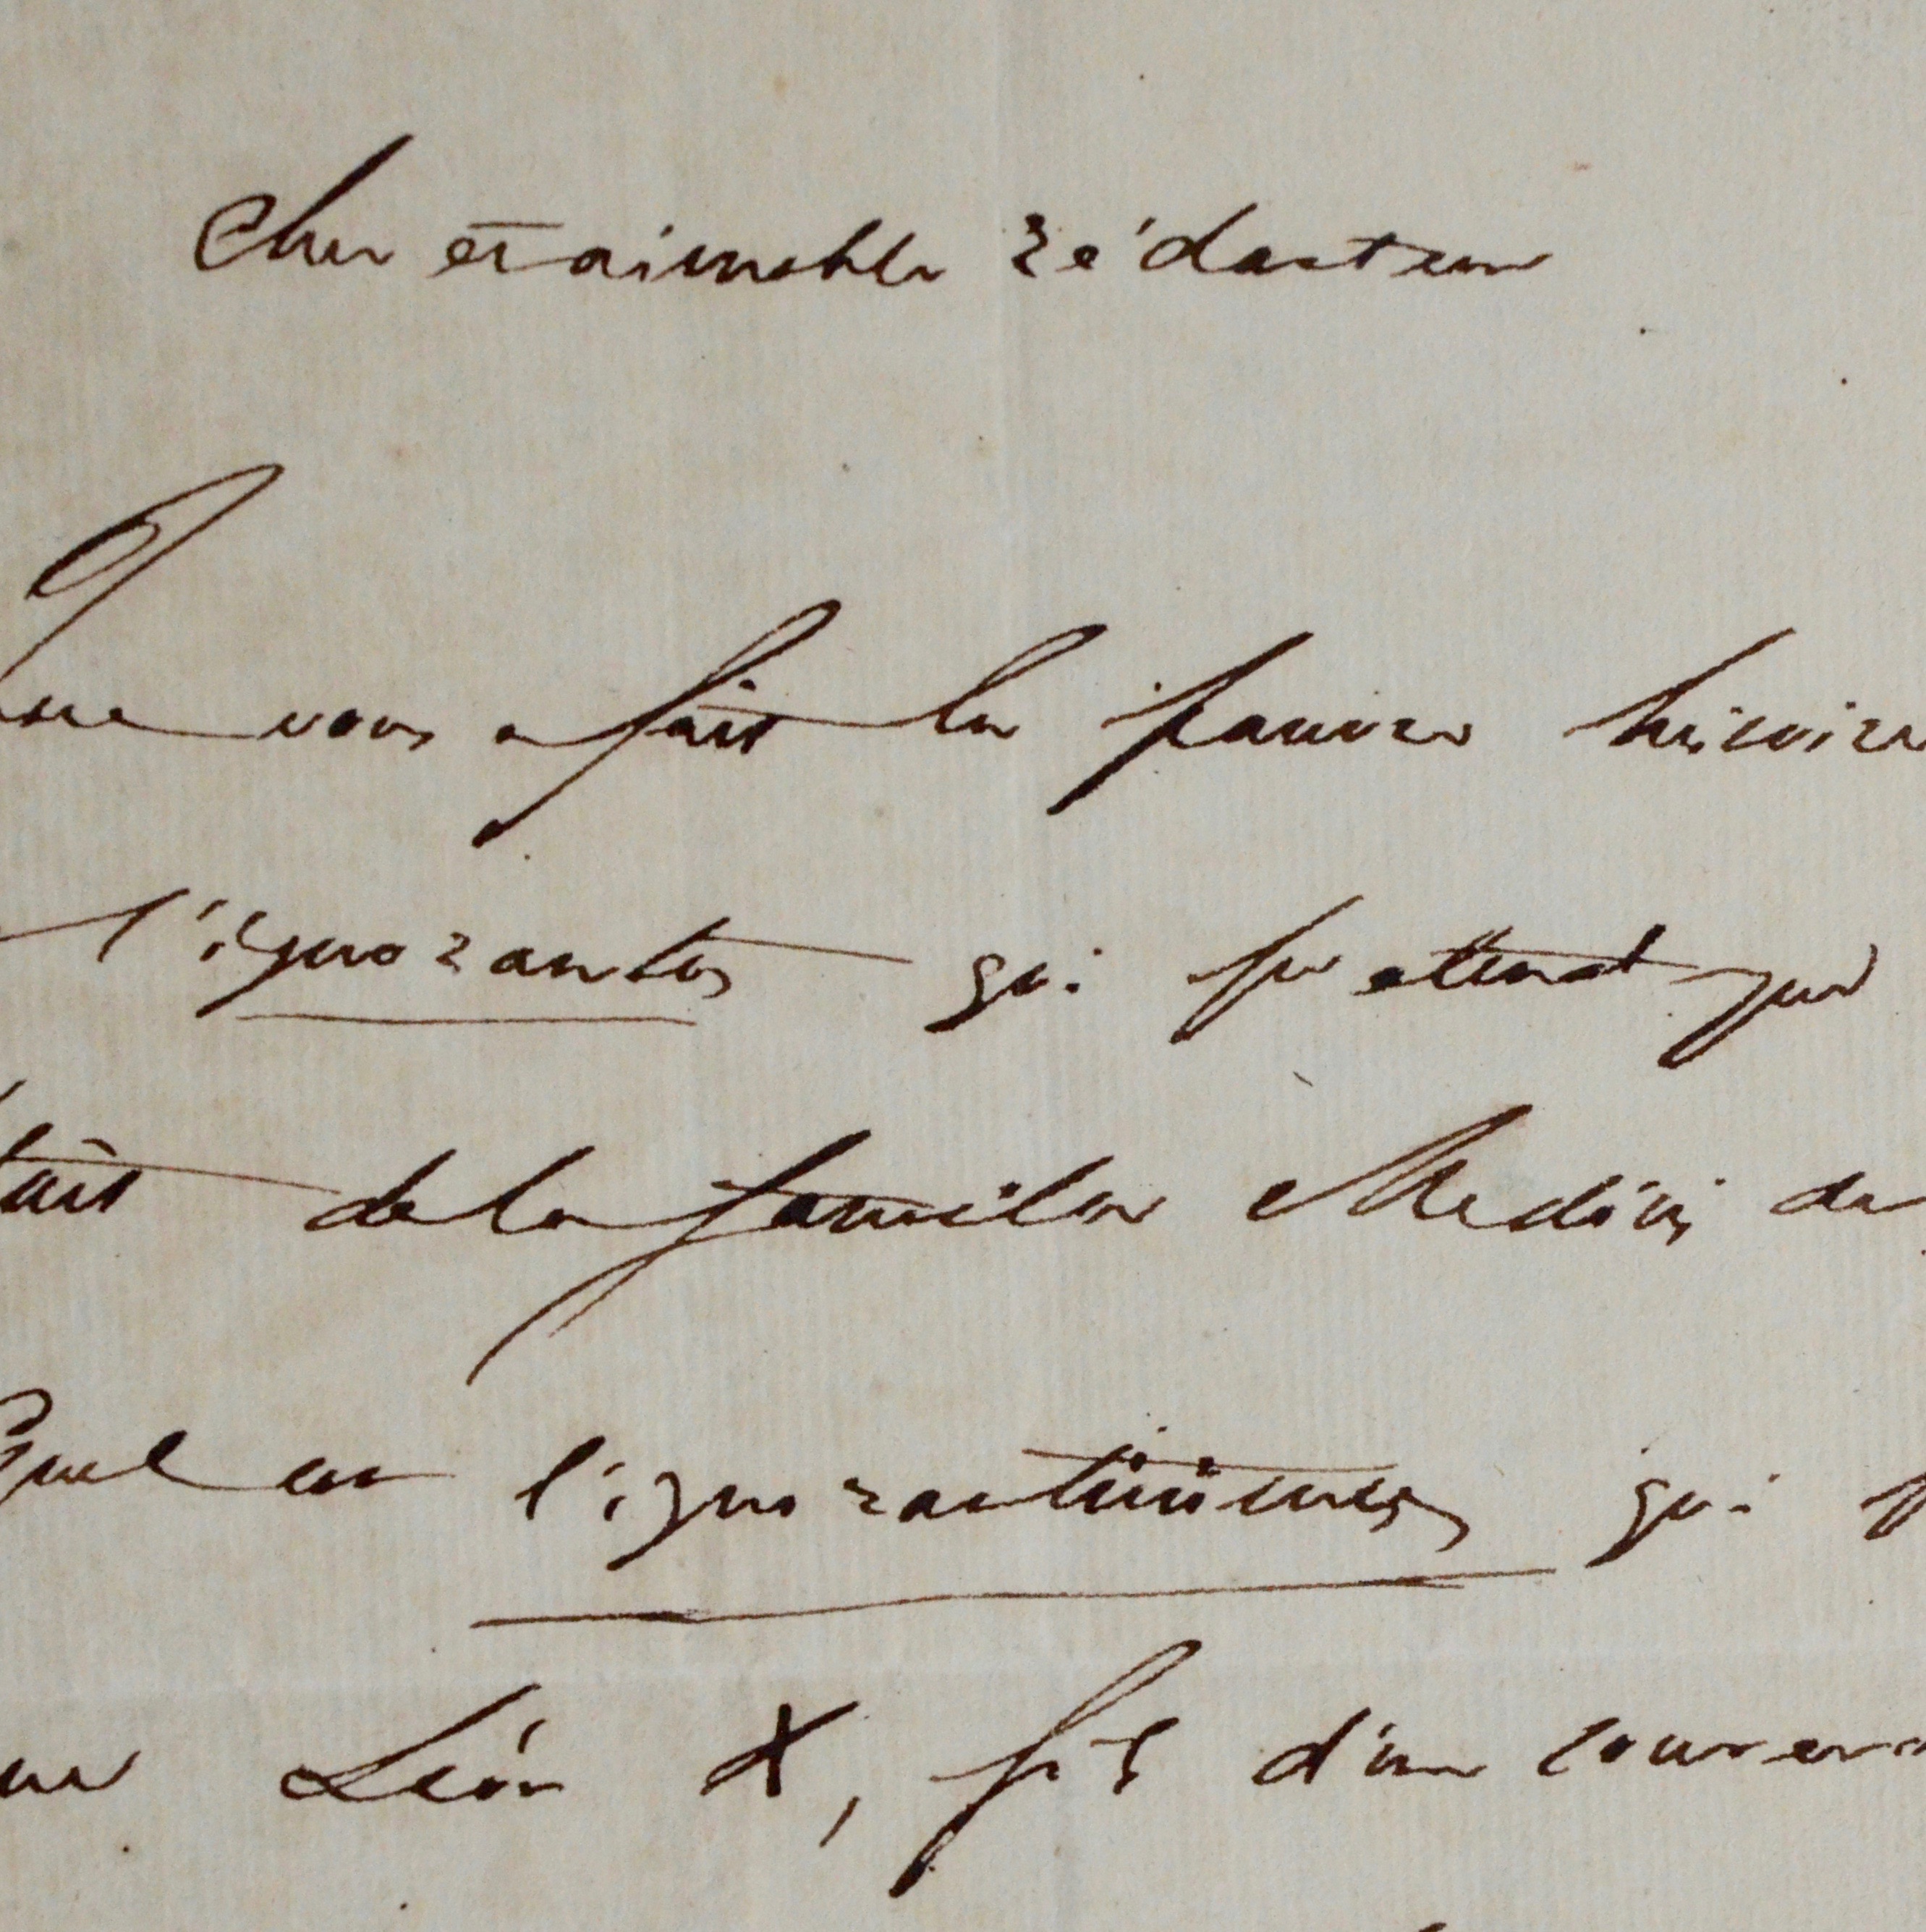 Cher et aimable rédacteur
Que vous a fait la pauvre histoire
l'ignorantos qui pretend que
tait de la famille Medicis de
Quel est l'ignorantissimus qui
que Léon X, fit d'un couven